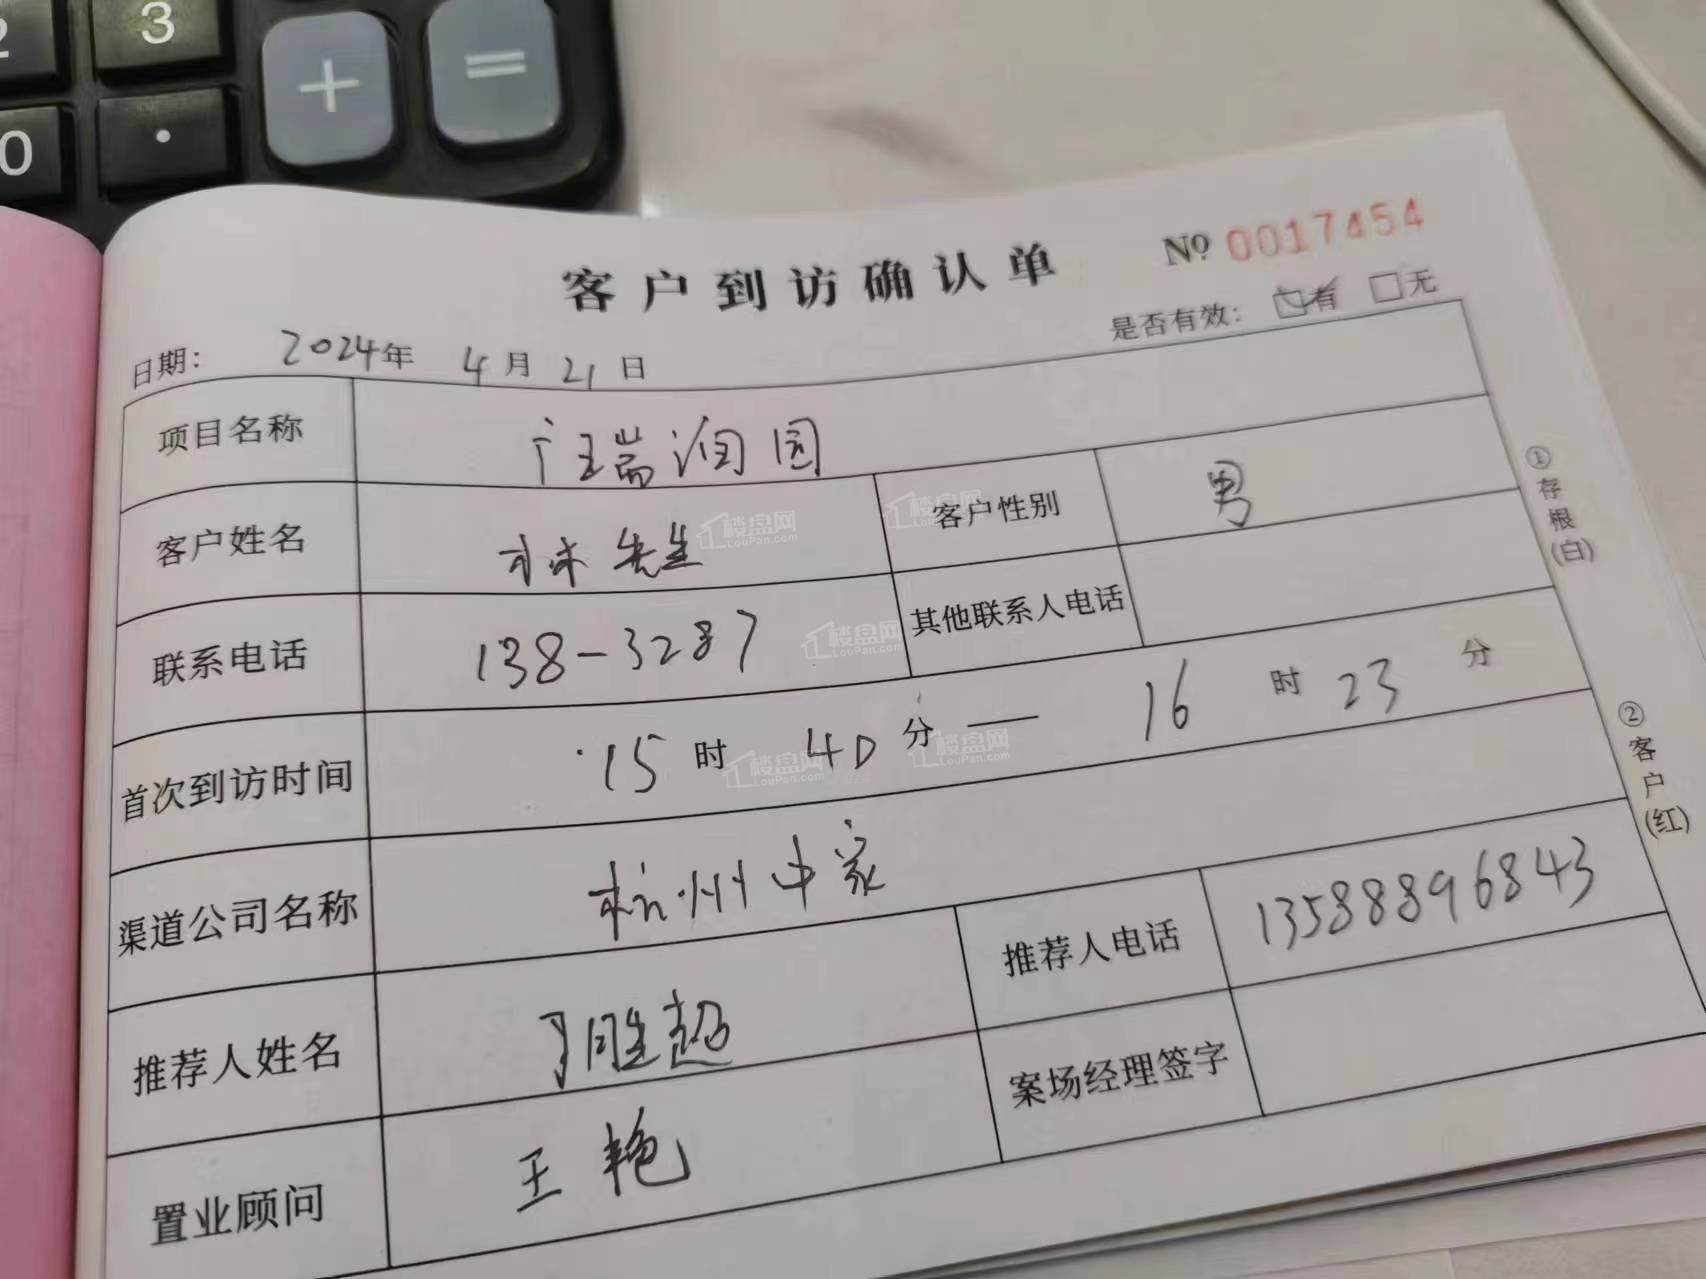 3
2
+
=
0
.
客户到访确认单
Nº 0017454
是否有效: ☑有 □无
日期: 2024年 4月21日
项目名称 广瑞润园
客户姓名 林先生 客户性别 男
联系电话 138-3287 其他联系人电话
首次到访时间 15时40分—16时23分
渠道公司名称 杭州中家
推荐人姓名 胜超 推荐人电话 13588896843
置业顾问 王艳 案场经理签字
①存根(白)
②客户(红)
楼盘网
LouPan.com
楼盘网
LouPan.com
楼盘网
LouPan.com
楼盘网
LouPan.com
楼盘网
LouPan.com